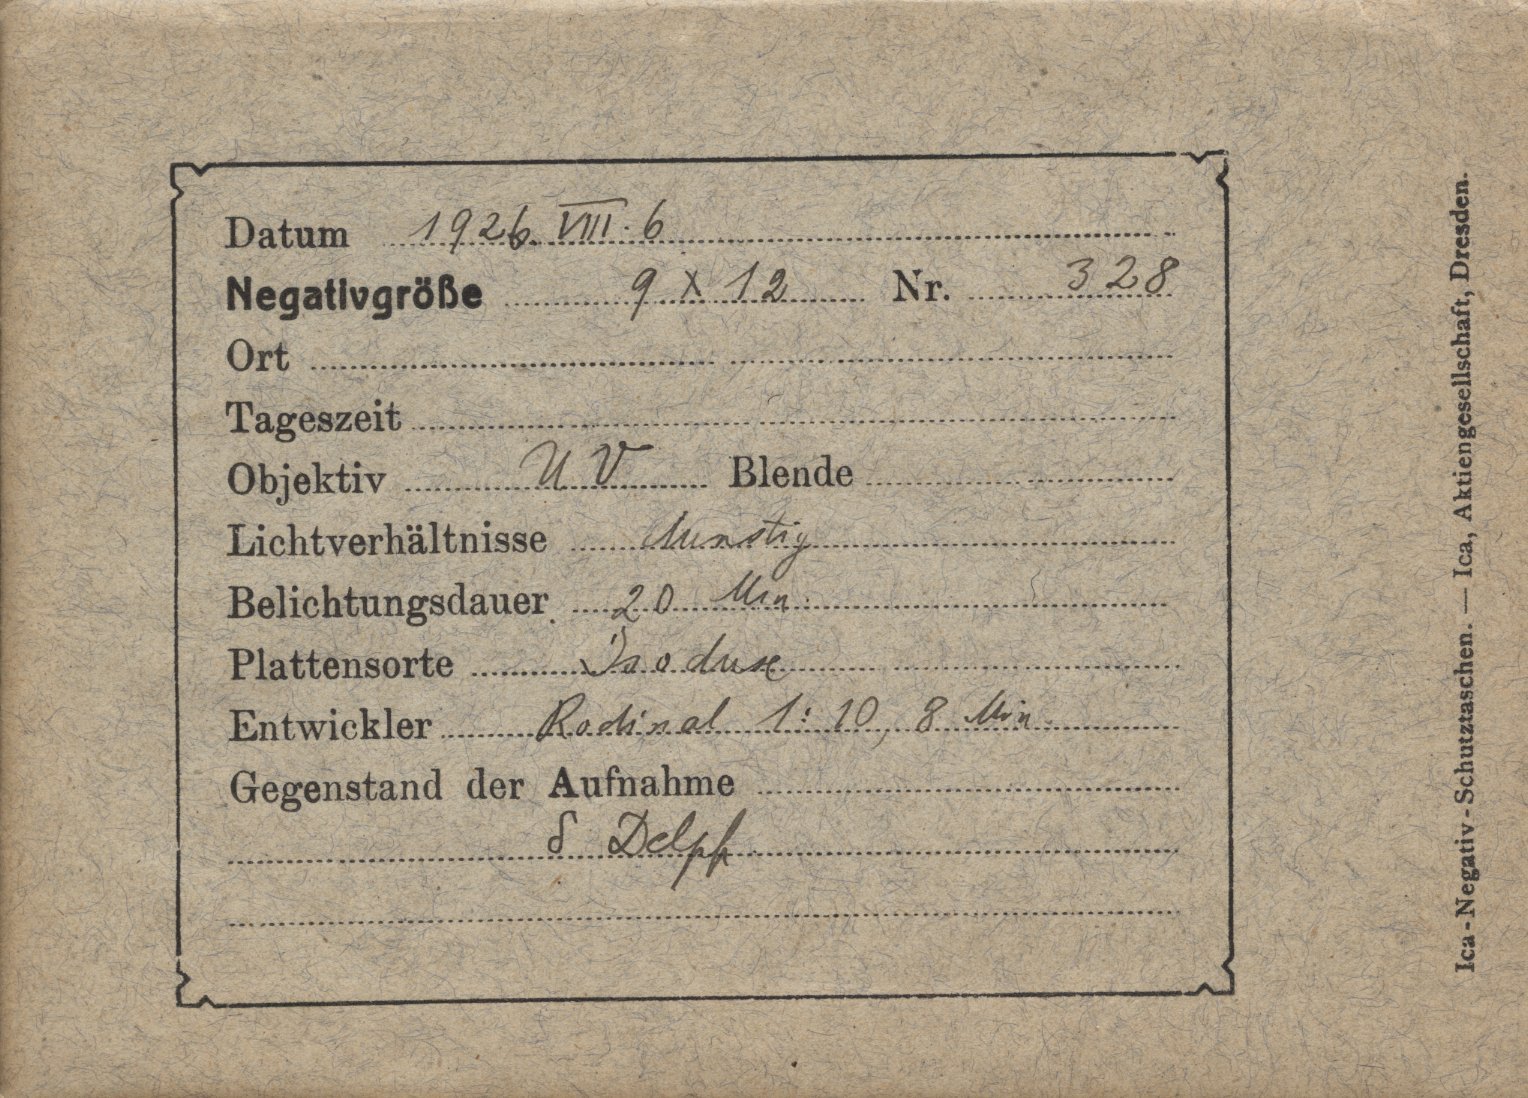 Datum 1926. VIII. 6
Negativgröße 9 X 12 Nr. 328
Ort
Tageszeit
Objektiv UV Blende
Lichtverhältnisse dunstig
Belichtungsdauer 20 Min.
Plattensorte Isodux
Entwickler Rodinal 1:10, 8 Min.
Gegenstand der Aufnahme
δ Delph
Ica-Negativ-Schutztaschen. — Ica, Aktiengesellschaft, Dresden.